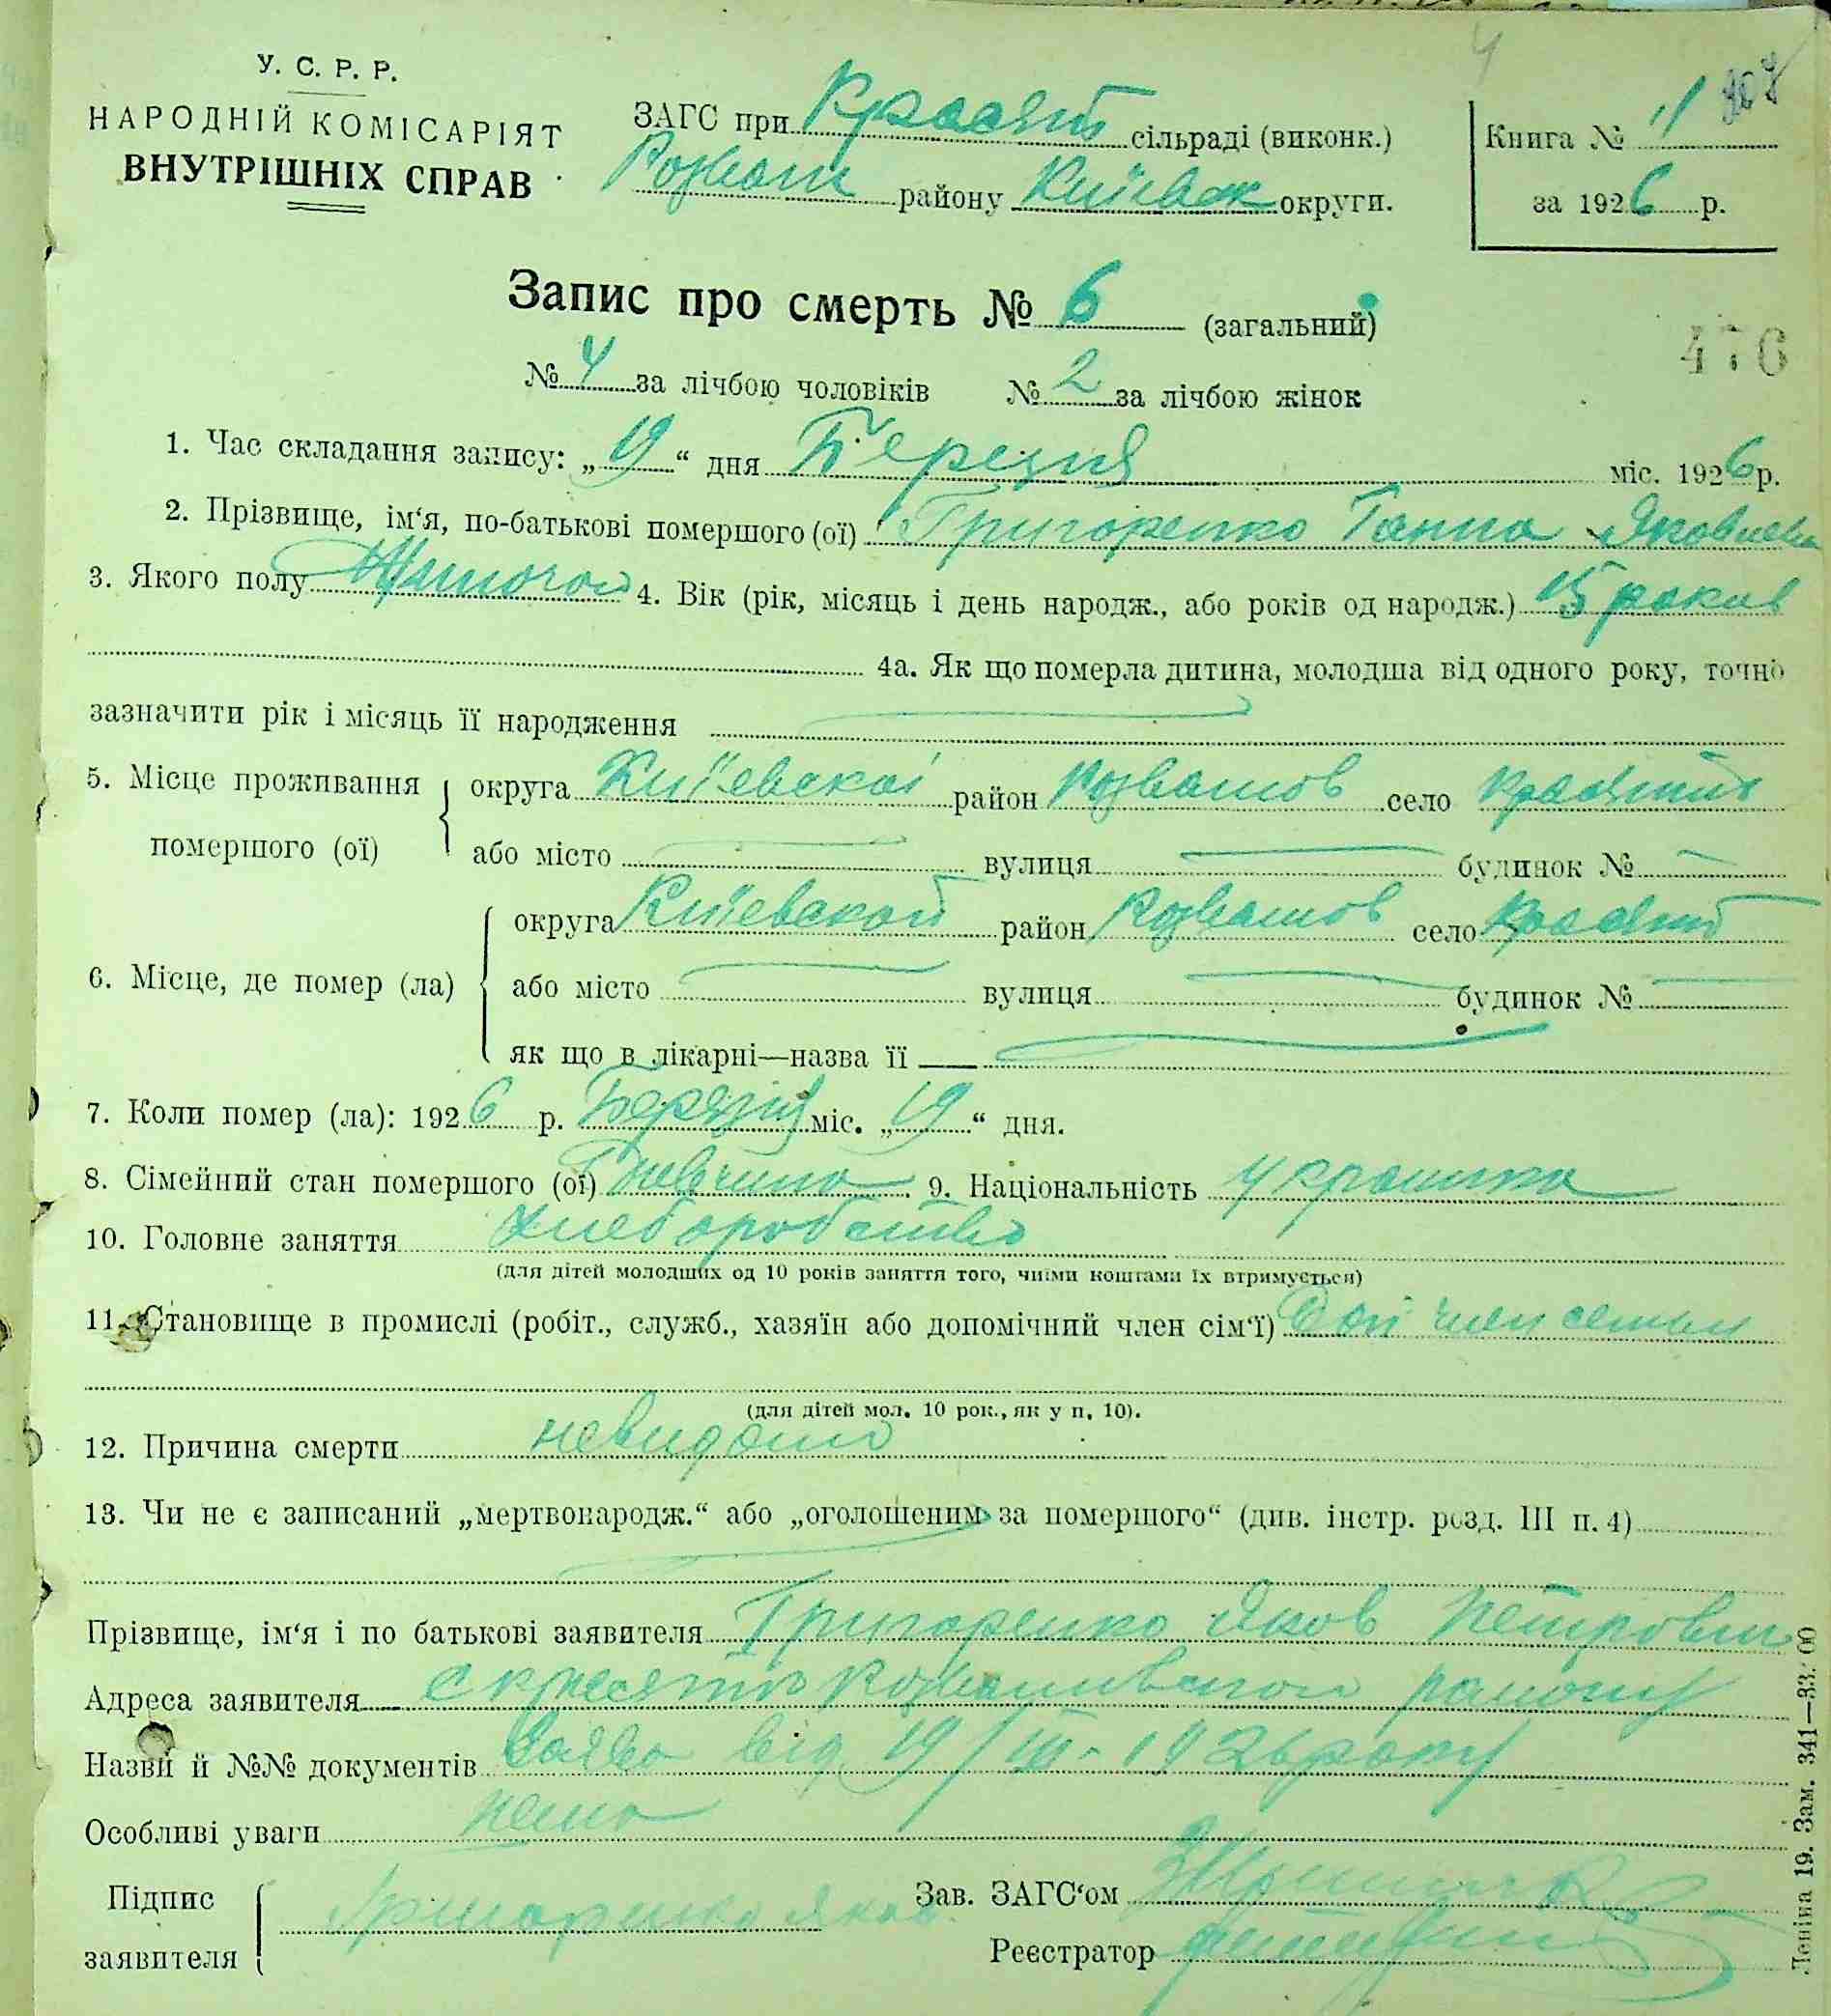 У. С. Р. Р.
НАРОДНІЙ КОМІСАРІЯТ
ВНУТРІШНІХ СПРАВ
ЗАГС при Красят сільраді (виконк.)
Розваж району Київськ округи.
Книга №
за 1926 р.
Запис про смерть № 6 (загальний)
476
№ 4 за лічбою чоловіків № 2 за лічбою жінок
1. Час складання запису: „19“ дня Березня міс. 1926 р.
2. Прізвище, ім‘я, по-батькові помершого (ої) Григоренко Ганна Яковлевна
3. Якого полу Жиночои 4. Вік (рік, місяць і день народж., або років од народж.) 15 роков
4а. Як що померла дитина, молодша від одного року, точно
зазначити рік і місяць її народження
5. Місце проживання помершого (ої)
округа Киівской район Розважов село Красятин
або місто вулиця будинок №
6. Місце, де помер (ла)
округа Киевской район Розважов село Красят
або місто вулиця будинок №
як що в лікарні—назва її
7. Коли помер (ла): 1926 р. Березня міс. „19“ дня.
8. Сімейний стан помершого (ої) Дивчина 9. Національність украинка
10. Головне заняття Хлеборобство
(для дітей молодших од 10 років заняття того, чиїми коштами їх втримується)
11. Становище в промислі (робіт., служб., хазяїн або допомічний член сім‘ї) Доп член семьи
(для дітей мол. 10 рок., як у п. 10).
12. Причина смерти невидомо
13. Чи не є записаний „мертвонародж.“ або „оголошеним за помершого“ (див. інстр. розд. III п. 4)
Прізвище, ім‘я і по батькові заявителя Григоренко Яков Петрович
Адреса заявителя с Красятичи району
Назви й №№ документів Заява від 19/III-1926 року
Особливі уваги нема
Підпис заявителя Григоренко Яков
Зав. ЗАГС‘ом
Реєстратор
Леніна 19. Зам. 341—33.00